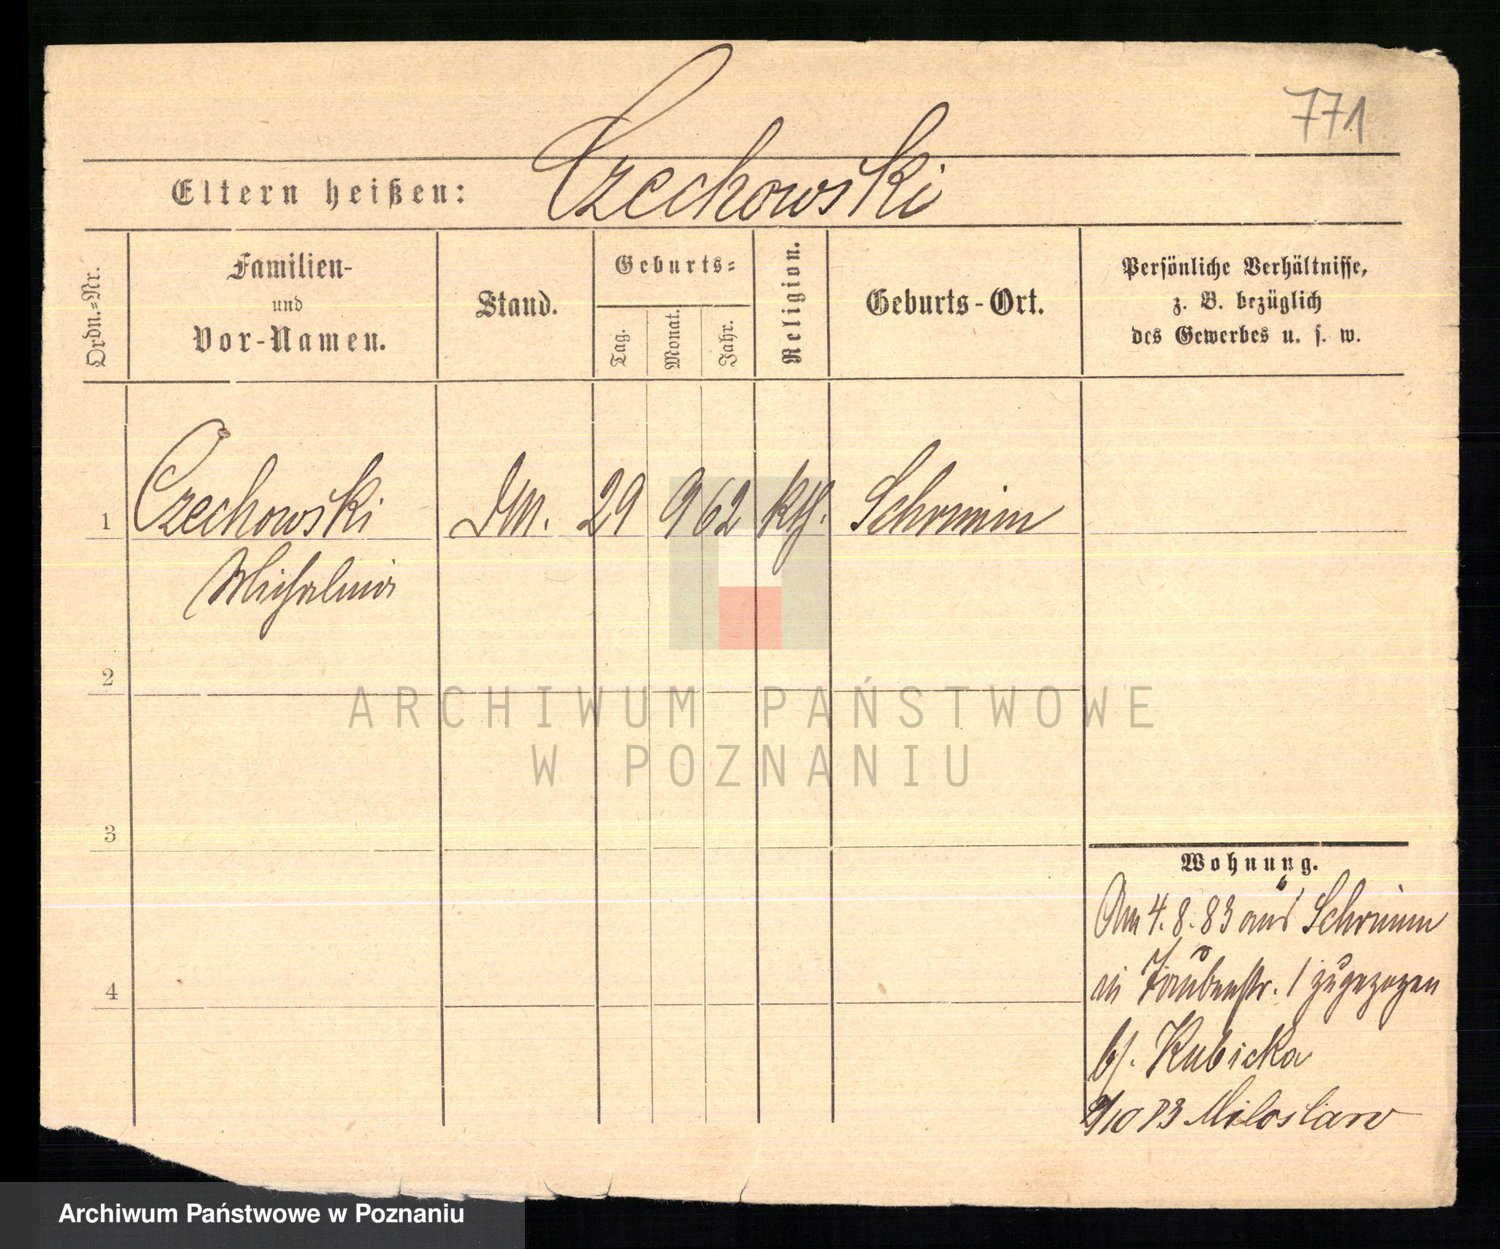 771
Eltern heißen: Czechowski
Ordn.-Nr.
Familien-
und
Vor-Namen.
Stand.
Geburts-
Tag.
Monat.
Jahr.
Religion.
Geburts-Ort.
Persönliche Verhältnisse,
z. B. bezüglich
des Gewerbes u. s. w.
1 Czechowski 29 9 62 kth. Schrimm
Michalina
2
3
4
ARCHIWUM PAŃSTWOWE
W POZNANIU
Wohnung.
Am 4.8.83 aus Schrimm
in Taubenstr. 1 zugezogen
b/. Kubicka
/10 83 Miloslaw
Archiwum Państwowe w Poznaniu